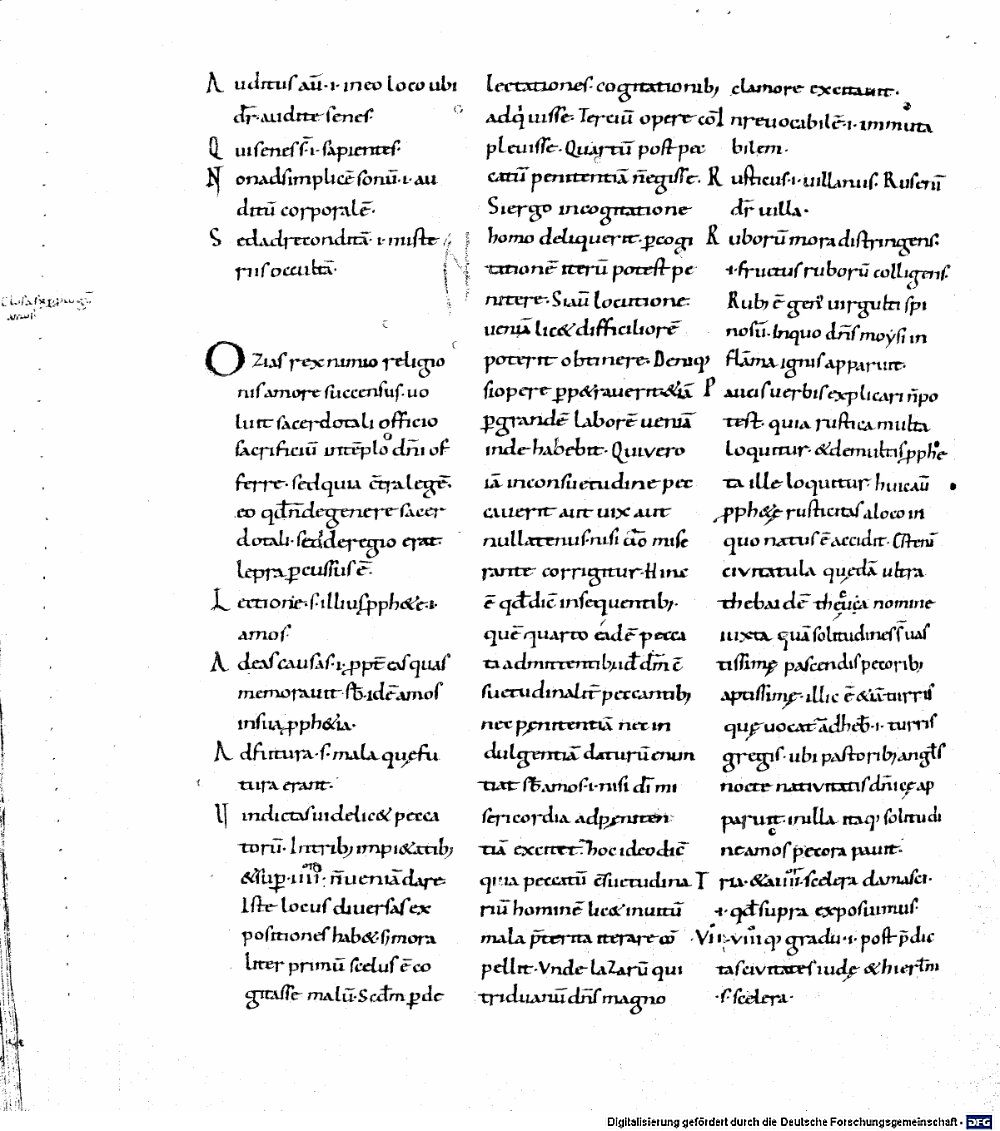 Auditus aū·i·in eo loco ubi
dr̄·audite senes·
Qui senes s̄·i·sapientes·
Non ad simplicē sonū·i·au
ditū corporalē·
Sed ad reconditā·i·miste
riis occultā·
amos·
Ozias rex nimio religio
nis amore succensus·uo
luit sacerdotali officio
sacrificiū in tēplo dn̄i of
ferre·sed quia c̄tra legē·
eo qđ n̄ de genere sacer
dotali·sed de regio erat·
lepra ꝑcussus ē·
Lectione·s·illius ꝓph&ę·i·
amos·
Adeas causas·i·ꝓpt̄ eas quas
memorauit·sb̄·idē amos
in sua ꝓph&ia·
Ad futura·s·mala quę fu
tura erant·
Uindictas uidelic& pecca
torū·In trib; impi&atib;
& suꝑ·iiii·n̄ ueniā dare·
Iste locus diuersas ex
positiones hab&·si mora
liter primū scelus ē co
gitasse malū·Scđm ꝑ de
lectationes·cogitationib;
adq̇uisse·Terciū opere cō
pleuisse·Quartū post pec
catū penitentiā n̄ egisse·
Si ergo in cogitatione
homo deliquerit·ꝑ cogi
tationē iterū potest pe
nitere·Si aū locutione·
ueniā lic& difficiliorē
poterit obtinere·Deniq;
si opere ꝑp&rauerit &iā
ꝑgrandē laborē ueniā
inde habebit·Qui vero
iā in consuetudine pec
cauerit aut uix aut
nullatenus·nisi dō mise
rante corrigitur·Hinc
ē qđ dic̄ in sequentib;·
quē quarto eadē pecca
ta admittentib; id đm ē
suetudinalit̄ peccantib;
nec pęnitentiā nec in
dulgentiā daturū enun
tiat sb̄ amos·i·nisi dī mi
sericordia ad pęniten
tiā excitet·hoc ideo dic̄
quia peccatū c̄suetudina
riū hominē lic& inuitū
mala p̄terita iterare cō
pellit·Vnde laZarū qui
triduanū dn̄s magno
clamore excitauit·
Inreuocabilē·i·immuta
bilem·
Rusticus·i·uillanus·Rus enī
dr̄ uilla·
Ruborū mora distringens·
·i·fructus ruborū colligens·
Rub; ē gen; uirgulti spi
nosū·In quo dn̄s moysi in
flāma ignis apparuit·
Paucis uerbis explicari n̄ po
test·quia rustica multa
loquitur·& de multis ꝓphe
ta ille loquitur·huic aū
ꝓph&ę rusticitas a loco in
quo natus ē accidit·Est enī
civitatula quędā ultra
thebaidē theuca nomine
iuxta quā solitudines s̄ uas
tissimę pascendis pecorib;
aptissimę·illic ē &iā turris
quę uocat̄ adheb̄·i·turris
gregis·ubi pastorib; angl̄s
nocte nativitatis dn̄icę ap
paruit·in illa itaq; solitudi
ne amos pecora pauit·
Tria·& a iiii·scelera damasci·
·i·qđ supra exposuimus·
VII·viiiq; gradu·i·post p̄dic
tas civitates iudę & hierl̄m
·s·scelera·
Digitalisierung gefördert durch die Deutsche Forschungsgemeinschaft - DFG